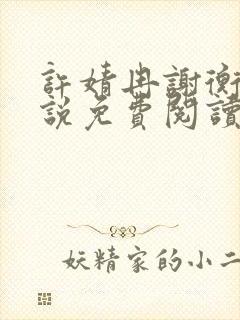 許婧冉謝衡
説免費閱讀
妖精家的小二